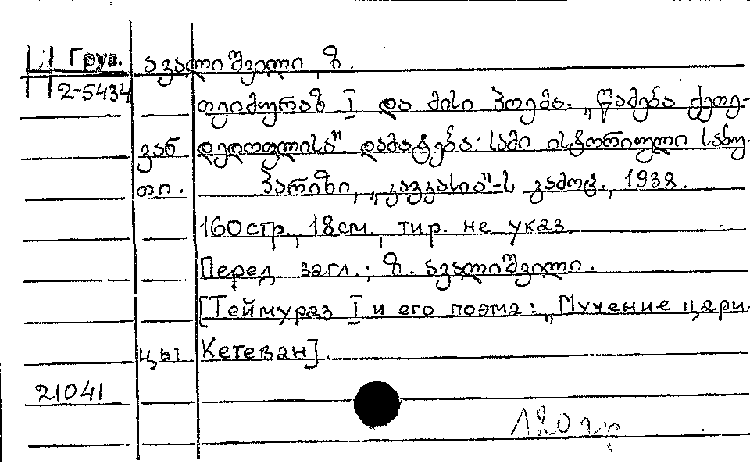 Груз. ავალიშვილი, ზ.
2-5434 თეიმურაზ I და მისი პოემა. „წამება ქეთე-
ვან დედოფლისა" დამატება: სამი ისტორიული საბუ-
თი. პარიზი, „კავკასია"-ს გამოც., 1938.
160стр., 18см., тир. не указ.
Перед загл.: ზ. ავალიშვილი.
[Теймураз I и его поэма: „Мучение цари-
цы Кетеван].
21041